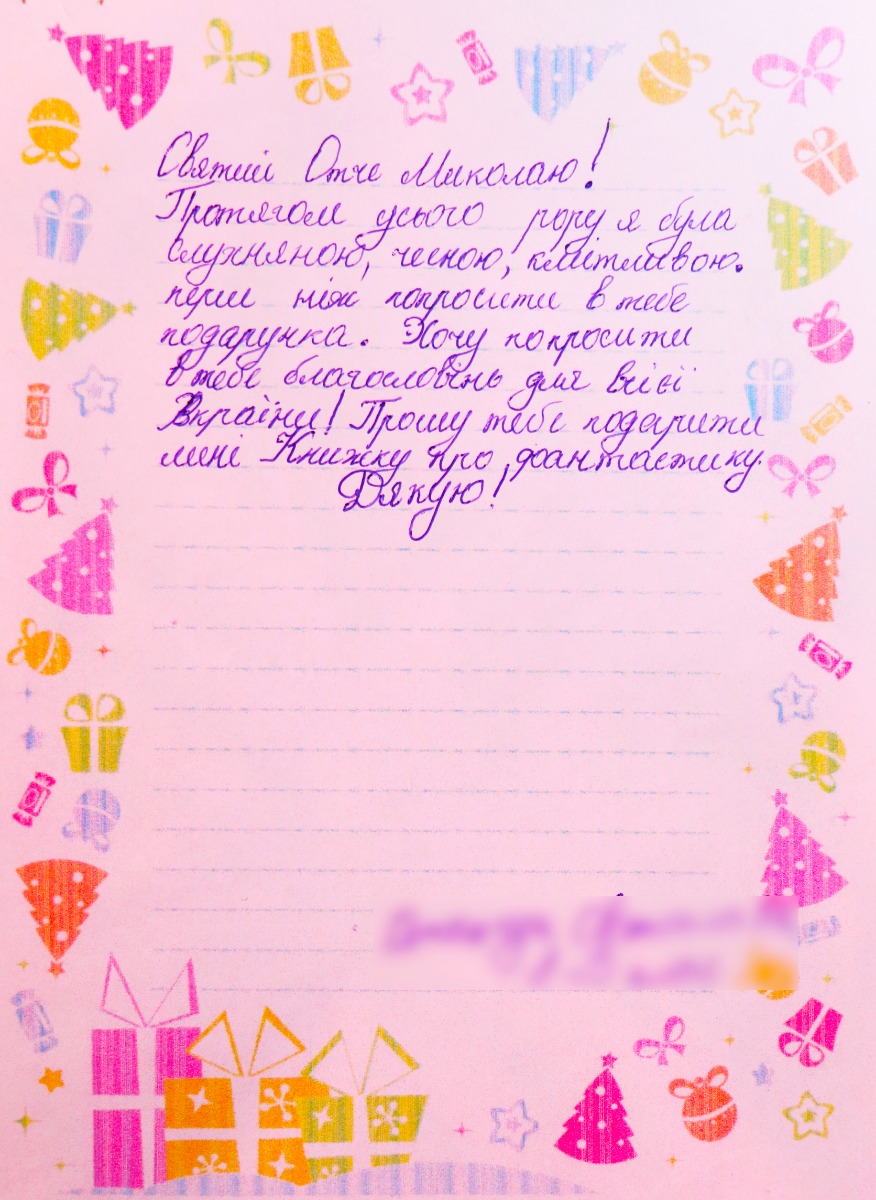 Святий Отче Миколаю!
Протягом усього рору я була
слухняною, чесною, кмітливою.
перш ніж попросити в тебе
подарунка. Хочу попросити
в тебе благословінь для всієї
України! Прошу тебе подарити
мині Книжку про фантастику.
Дякую!